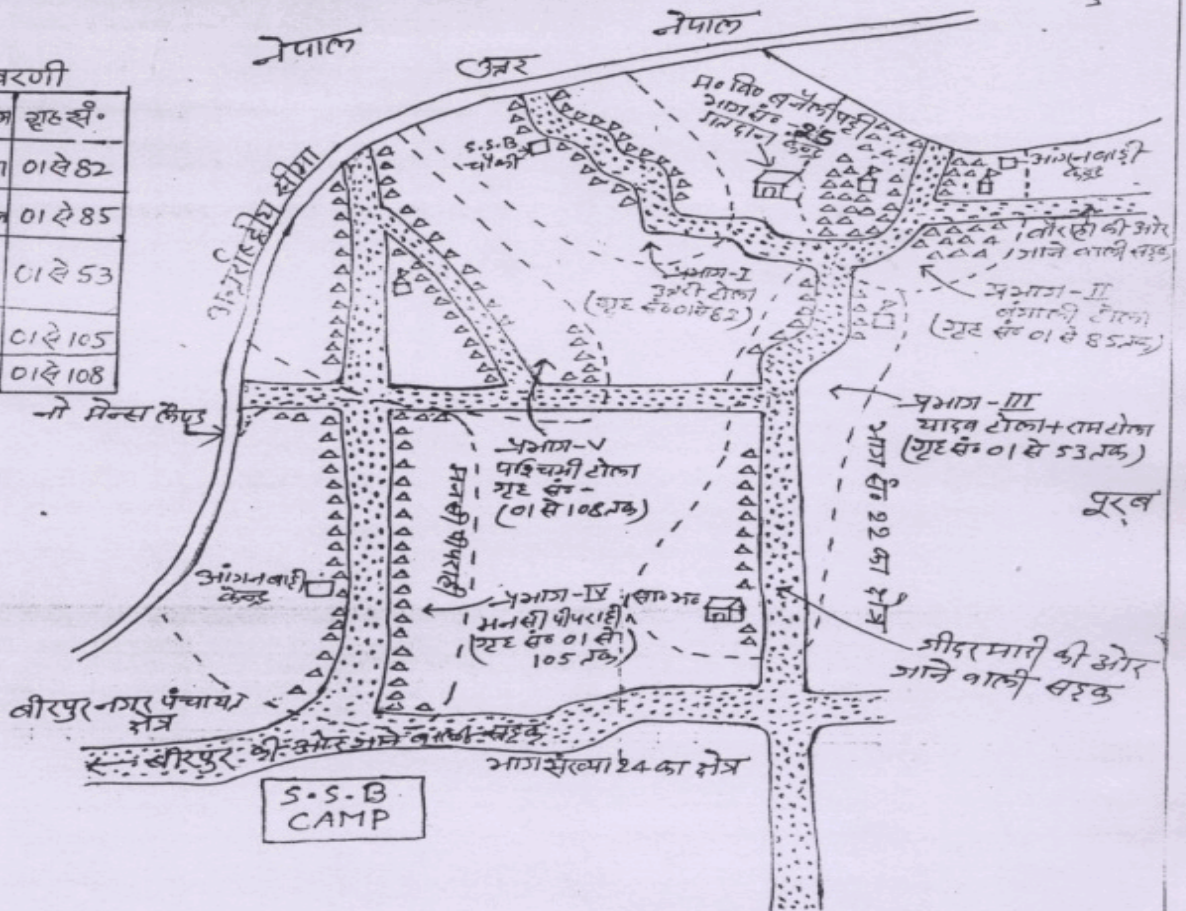 नेपाल
नेपाल
उत्तर
वरणी
गृह सं॰
01 से 82
01 से 85
01 से 53
01 से 105
01 से 108
अन्तर्राष्ट्रीय सीमा
S.S.B
चौकी
म॰ वि॰
भाग सं॰ -25
मतदान केन्द्र
आंगनबाड़ी
केन्द्र
की ओर
जाने वाली सड़क
प्रभाग-I
टोला
(गृह सं॰ 01 से 82)
प्रभाग-II
बंगाली टोला
(गृह सं॰ 01 से 85 तक)
नो मेन्स लैण्ड
प्रभाग-III
यादव टोला + राम टोला
(गृह सं॰ 01 से 53 तक)
प्रभाग-V
पश्चिमी टोला
गृह सं॰-
(01 से 108 तक)
मनसी पीपराही
भाग सं॰ 22 का क्षेत्र
पूरब
आंगनबाड़ी
केन्द्र
प्रभाग-IV
मनसी पीपराही
(गृह सं॰ 01 से
105 तक)
सा॰ भ॰
गीदरमारी की ओर
जाने वाली सड़क
बीरपुर नगर पंचायत
क्षेत्र
बीरपुर की ओर जाने वाली सड़क
भाग संख्या 24 का क्षेत्र
S.S.B
CAMP